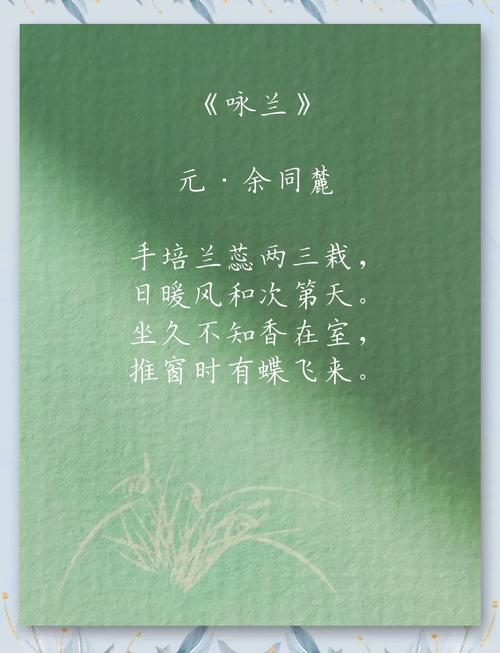 《咏兰》
元·余同麓
手培兰蕊两三栽，
日暖风和次第天。
坐久不知香在室，
推窗时有蝶飞来。